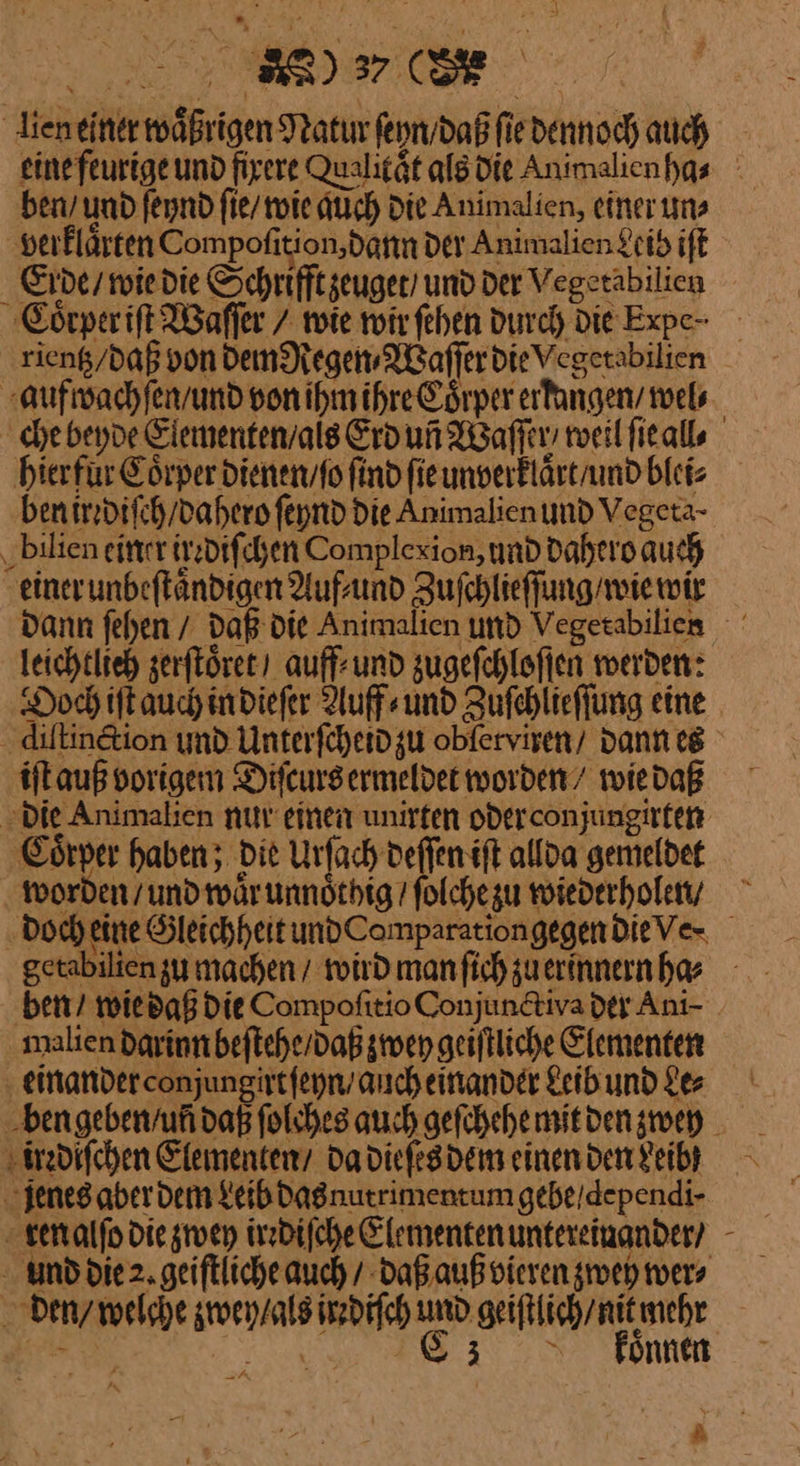 ) 37 (
lien einer wäßrigen Natur ſeyn/daß ſie dennoch auch
eine feurige und fixere Qualität als die Animalien ha⸗
ben/ und ſeynd ſie/ wie auch die Animalien, einer un⸗
verklärten Compoſition, dann der Animalien Leib iſt
Erde / wie die Schrifft zeuget/ und der Vegetabilien
Cörper iſt Waſſer / wie wir ſehen durch die Expe-
rientz/daß von dem Regen⸗Waſſer die Vegetabilien
aufwachſen/und von ihm ihre Cörper erlangen/ wel⸗
che beyde Elementen/als Erd uñ Waſſer/ weil ſie all⸗
hier für Cörper dienen/ſo ſind ſie unverklärt/und blei⸗
ben irꝛdiſch/dahero ſeynd die Animalien und Vegeta-
bilien einer irꝛdiſchen Complexion, und dahero auch
einer unbeſtändigen Auf⸗und Zuſchlieſſung/wie wir
dann ſehen / daß die Animalien und Vegetabilien
leichtlich zerſtöret/ auff⸗ und zugeſchloſſen werden:
Doch iſt auch in dieſer Auff⸗ und Zuſchlieſſung eine
diſtinction und Unterſcheid zu obſerviren/ dann es
iſt auß vorigem Diſcurs ermeldet worden / wie daß
die Animalien nur einen unirten oder conjungirten
Cörper haben; die Urſach deſſen iſt allda gemeldet
worden / und wär unnöthig / ſolche zu wiederholen/
doch eine Gleichheit und Comparation gegen die Ve-
getabilien zu machen / wird man ſich zu erinnern ha⸗
ben / wie daß die Compoſitio Conjunctiva der Ani-
malien darinn beſtehe/daß zwey geiſtliche Elementen
einander conjungirt ſeyn/ auch einander Leib und Le⸗
ben geben/uñ daß ſolches auch geſchehe mit den zwey
irꝛdiſchen Elementen/ da dieſes dem einen den Leib/
jenes aber dem Leib das nutrimentum gebe/dependi-
ren alſo die zwey irꝛdiſche Elementen untereinander/
und die 2. geiſtliche auch / daß auß vieren zwey wer⸗
den/ welche zwey/als irꝛdiſch und geiſtlich/nit mehr
C 3 können